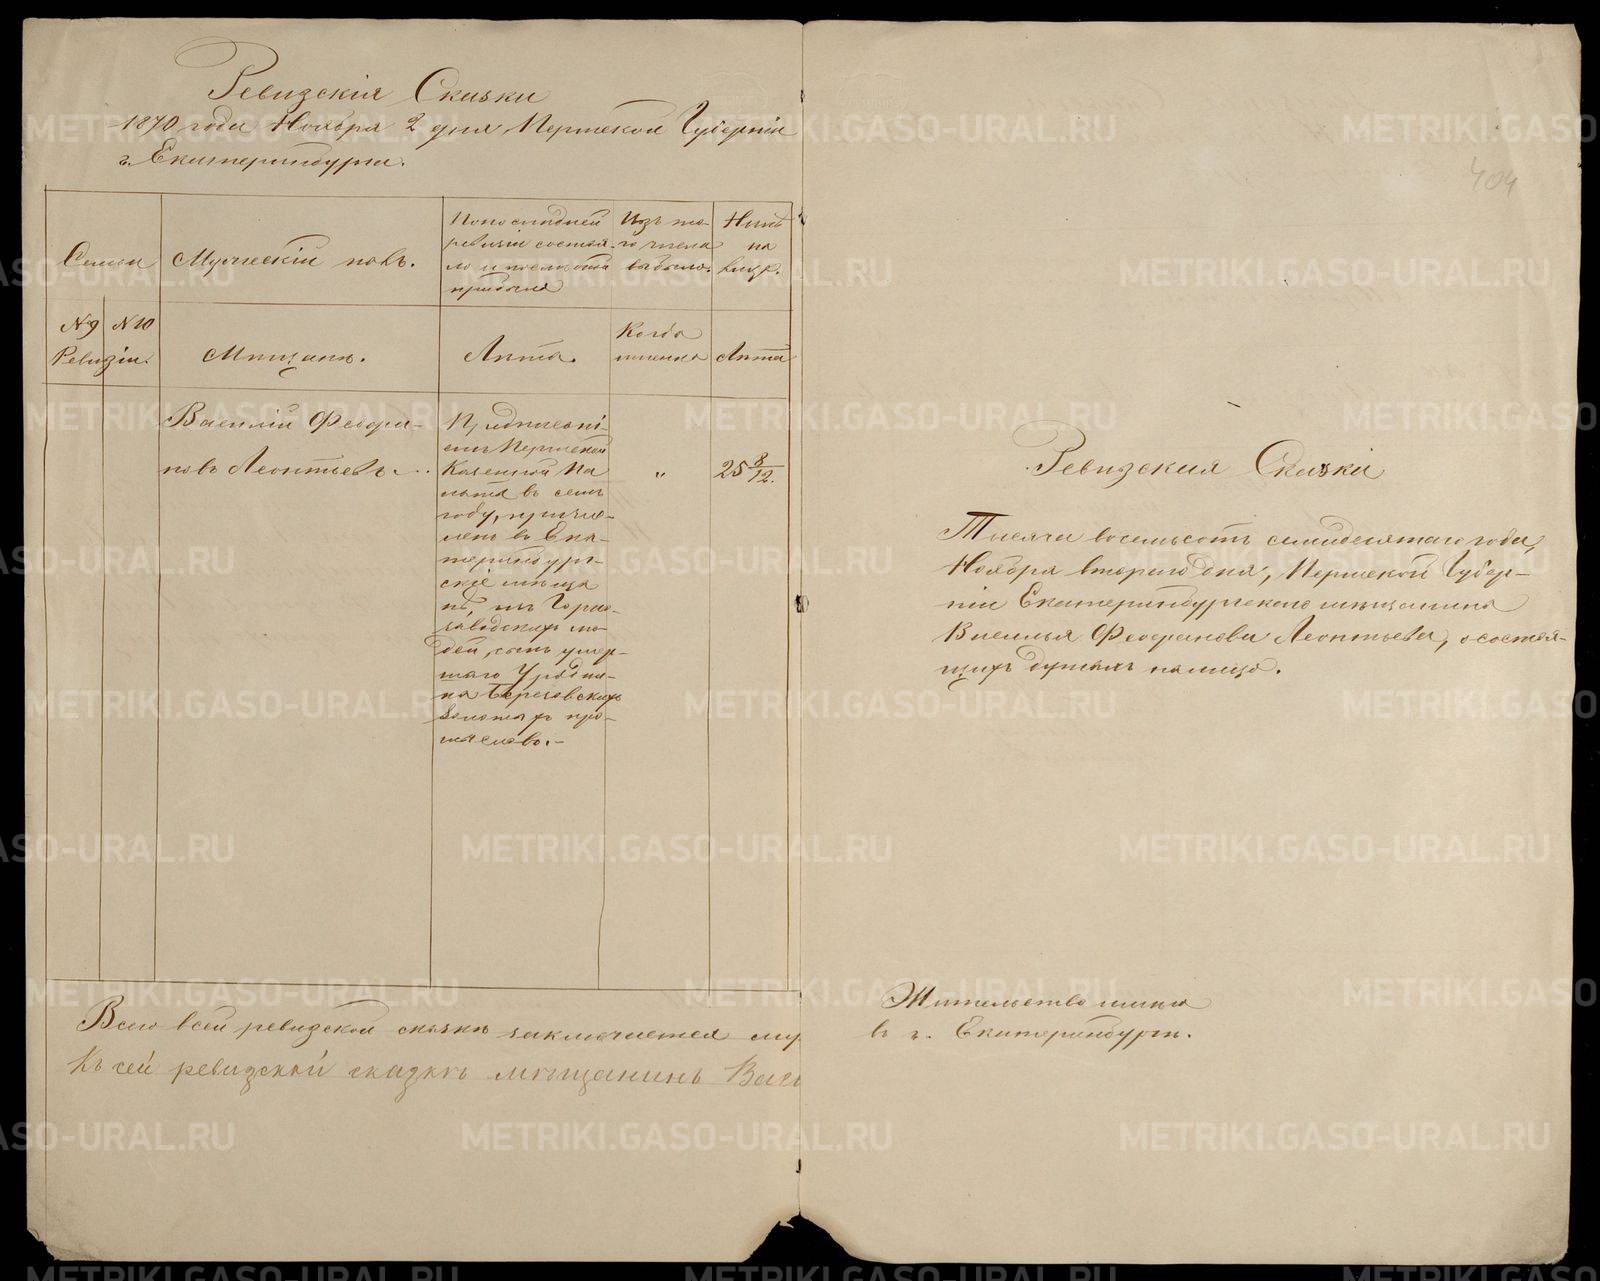 Ревизскія Сказки
1870 года Ноября 2 дня Пермской Губерніи
г. Екатеринбурга.
Семьи
Мужескій полъ.
По последней
ревизіи состоя-
ло и после того
прибыло
Изъ то-
го числа
выбыло.
Ныне
на
лицо.
№ 9 № 10
Ревизіи.
Мещане.
Лета.
Когда
именно
Лета
Василій Феофа-
новъ Леонтьевъ.
Предписані-
емъ Пермской
Казенной Па
латы въ семъ
году, причис-
ленъ въ Ека-
теринбург-
скіе меща
не, изъ Горно-
заводскихъ лю-
дей, сынъ умер-
шаго Урядни-
ка Березовскихъ
золотыхъ про-
мысловъ.-
"
25 8/12.
Всего въ сей ревизской сказке заключается му
Къ сей ревизской сказке мещанинъ Васи
404
Ревизскія Сказки
Тысяча восемьсотъ семидесятаго года,
Ноября втораго дня, Пермской Губер-
ніи Екатеринбургскаго мещанина
Василья Феофанова Леонтьева, о состоя-
щихъ душахъ налицо.
Жительство имею
въ г. Екатеринбурге.
METRIKI.GASO-URAL.RU